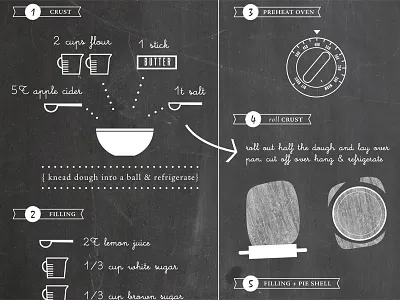 1 CRUST
2 cups flour
1 stick
BUTTER
5T apple cider
1t salt
{ knead dough into a ball & refrigerate}
2 FILLING
2T lemon juice
1/3 cup white sugar
1/3 cup brown sugar
3 PREHEAT OVEN
4 roll CRUST
roll out half the dough and lay over
pan. cut off over hang & refrigerate
5 FILLING + PIE SHELL